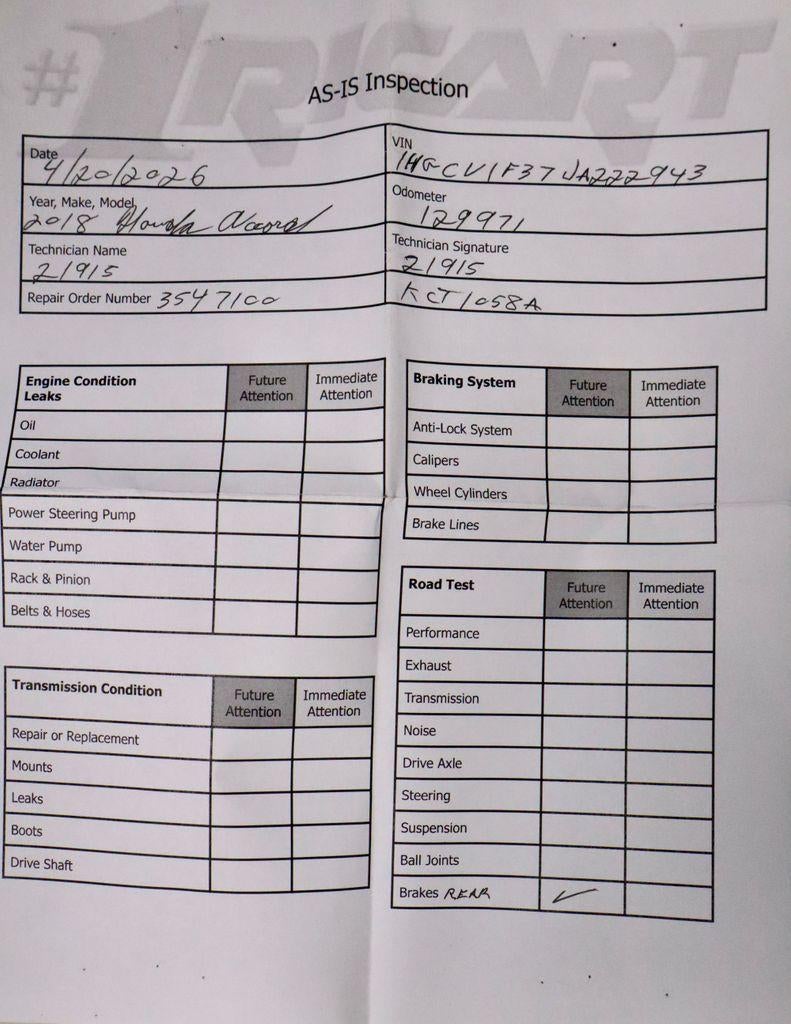 #1RICART
AS-IS Inspection
Date
4/20/2026
VIN
1HGCV1F37JA222943
Year, Make, Model
2018 Honda Accord
Odometer
129971
Technician Name
21915
Technician Signature
21915
Repair Order Number 3547100
KCT1058A
Engine Condition
Leaks
Future
Attention
Immediate
Attention
Oil
Coolant
Radiator
Power Steering Pump
Water Pump
Rack & Pinion
Belts & Hoses
Braking System
Future
Attention
Immediate
Attention
Anti-Lock System
Calipers
Wheel Cylinders
Brake Lines
Transmission Condition
Future
Attention
Immediate
Attention
Repair or Replacement
Mounts
Leaks
Boots
Drive Shaft
Road Test
Future
Attention
Immediate
Attention
Performance
Exhaust
Transmission
Noise
Drive Axle
Steering
Suspension
Ball Joints
Brakes REAR ✓